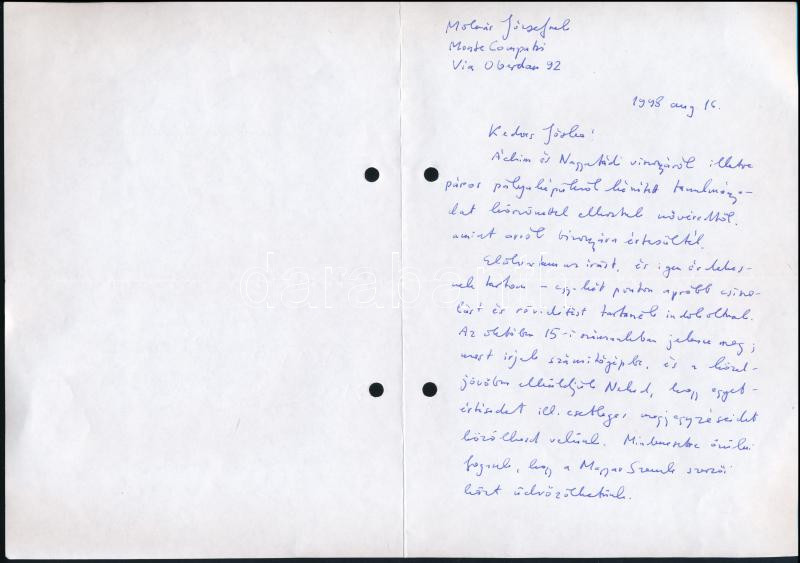 Molnár Józsefnek
Monte Compatri
Via Oberdan 92
1998 aug 16.
Kedves Jóska!
Áchim és Nagyatádi viszonyáról illetve
páros pályaképükről készített tanulmányo-
dat köszönettel átvettük nővéredtől,
amint arról bizonyára értesültél.
Elolvastam az írást, és igen érdekes-
nek tartom – egy-két ponton apróbb csiszo-
lást és rövidítést tartanék indokoltnak.
Az október 15-i számunkban jelenne meg;
most írjuk számítógépbe, és a közel-
jövőben elküldjük Neked, hogy egyet-
értésedet ill. esetleges megjegyzéseidet
közölhesd velünk. Mindenesetre örülni
fogunk, hogy a Magyar Szemle szerzői
közt üdvözölhetünk.
darabanth